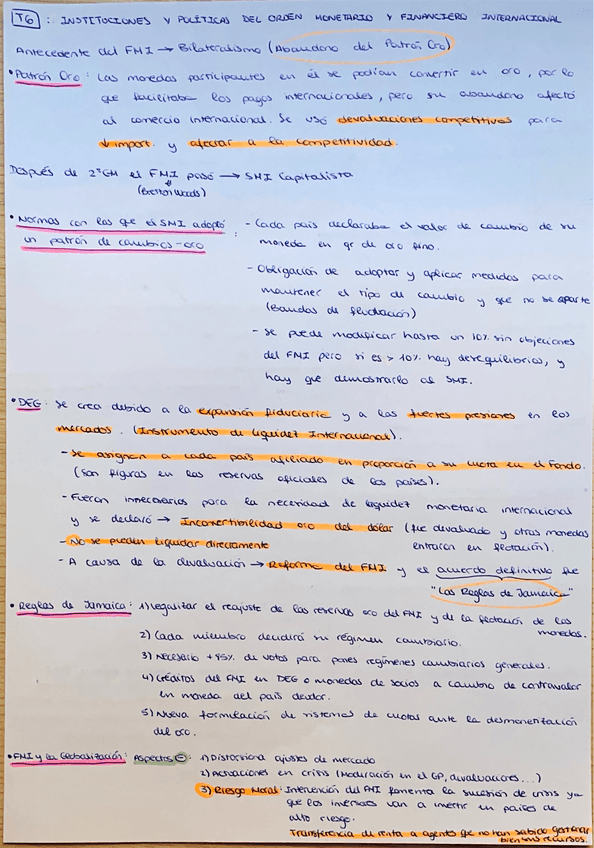 T6: INSTITUCIONES Y POLÍTICAS DEL ORDEN MONETARIO Y FINANCIERO INTERNACIONAL
Antecedente del FMI → Bilateralismo (Abandono del Patrón Oro)
• Patrón Oro: Las monedas participantes en él se podían convertir en oro, por lo
que facilitaba los pagos internacionales, pero su abandono afectó
al comercio internacional. Se usó devaluaciones competitivas para
↓ import. y afectar a la competitividad.
Después de 2ª GM el FMI pasó → SMI Capitalista
(Bretton Woods)
• Normas con las que el SMI adoptó
un patrón de cambios-oro:
- Cada país declaraba el valor de cambio de su
moneda en gr de oro fino.
- Obligación de adoptar y aplicar medidas para
mantener el tipo de cambio y que no se aparte
(Bandas de fluctuación)
- Se puede modificar hasta un 10% sin objeciones
del FMI pero si es > 10% hay desequilibrios, y
hay que demostrarlo al SMI.
• DEG: Se crea debido a la expansión fiduciaria y a las fuertes presiones en los
mercados. (Instrumento de Liquidez Internacional).
- Se asignan a cada país afiliado en proporción a su cuota en el Fondo.
(Son figuras en las reservas oficiales de los países).
- Fueron innecesarios para la necesidad de liquidez monetaria internacional
y se declaró → Inconvertibilidad oro del dólar (fue devaluado y otras monedas
entraron en flotación).
- No se pueden liquidar directamente
- A causa de la devaluación → Reforma del FMI y el acuerdo definitivo fue
"Las Reglas de Jamaica"
• Reglas de Jamaica: 1) Legalizar el reajuste de las reservas oro del FMI y de la flotación de las
monedas.
2) Cada miembro decidirá su régimen cambiario.
3) Necesario +85% de votos para poner regímenes cambiarios generales.
4) Créditos del FMI en DEG o monedas de socios a cambio de contravalor
en moneda del país deudor.
5) Nueva formulación de sistemas de cuotas ante la desmonetización
del oro.
• FMI y la Globalización: Aspectos ⊖: 1) Distorsiona ajustes de mercado
2) Actuaciones en crisis (Moderación en el GP, devaluaciones...)
3) Riesgo Moral: Intervención del FMI fomenta la sucesión de crisis ya
que los inversores van a invertir en países de
alto riesgo.
Transferencia de renta a agentes que no han sabido gestionar
bien sus recursos.